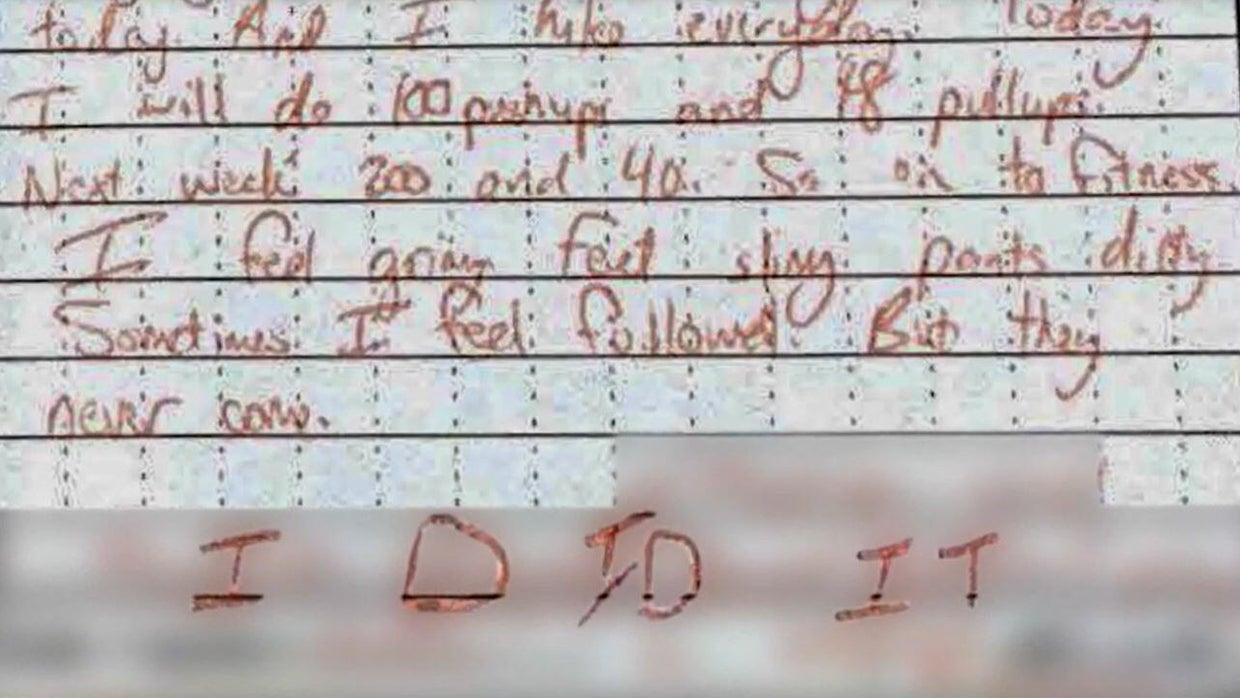 today. And I hike everyday. Today
I will do 100 pushups and 48 pullups.
Next week 200 and 40. So on to fitness.
I feel grimy feel slimy pants dirty
Sometimes I feel followed But they
never come.
I D I D IT